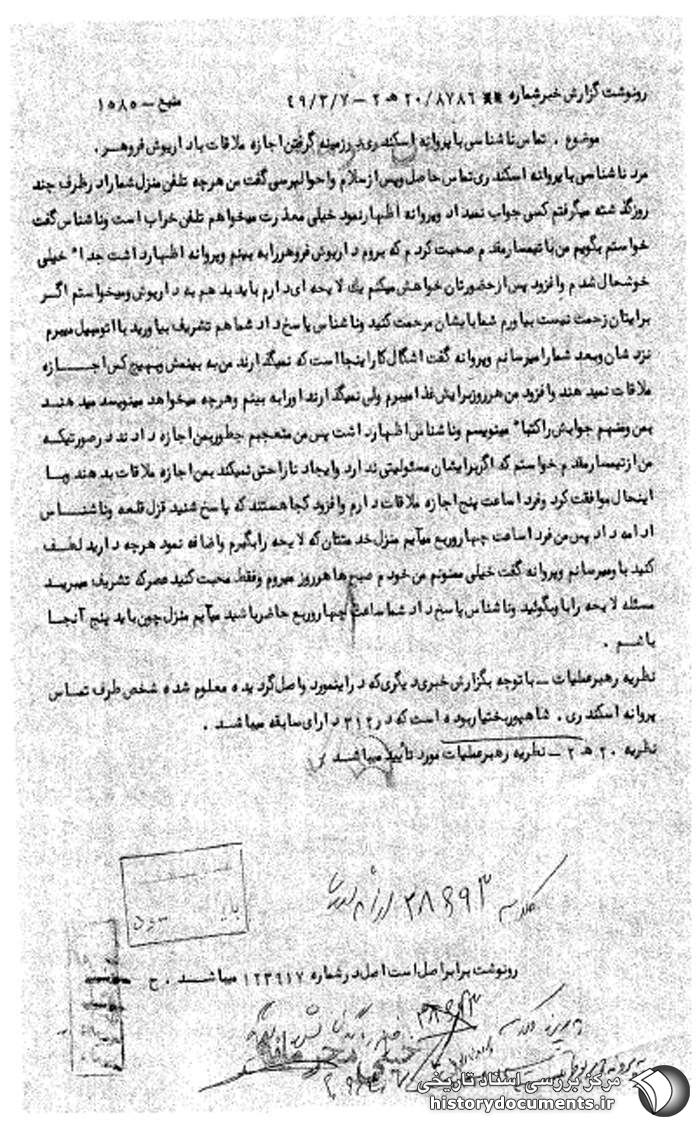 رونوشت گزارش خبر شماره ** ۲۰/۸۷۸۶ هـ ۲ – ۴۹/۳/۷ منبع – ۱۵۸۵
موضوع . تماس ناشناسی با پروانه اسکندری در زمینه گرفتن اجازه ملاقات با داریوش فروهر .
مرد ناشناسی با پروانه اسکندری تماس حاصل و پس از سلام و احوالپرسی گفت من هرچه تلفن منزل شما را در ظرف چند
روز گذشته میگرفتم کسی جواب نمیداد و پروانه اظهار نمود خیلی معذرت میخواهم تلفن خراب است و ناشناس گفت
خواستم بگویم من با تیمسار مقدم صحبت کردم که بروم داریوش فروهر را به بینم و پروانه اظهار داشت جدا" خیلی
خوشحال شدم و افزود پس از حضورتان خواهش میکنم یك لایحه ای دارم باید بدهم به داریوش و میخواستم اگر
برایتان زحمت نیست بیاورم شما بایشان مرحمت کنید و ناشناس پاسخ داد شما هم تشریف بیاورید با اتومبیل میبرم
نزد شان و بعد شما را میرسانم و پروانه گفت اشگال کار اینجا است که نمیگذارند من به بینمش و بهیچ کس اجازه
ملاقات نمیدهند و افزود من هر روز برایش غذا میبرم ولی نمیگذارند او را به بینم و هرچه میخواهد مینویسد میدهند
بمن و منهم جوابش را کتبا" مینویسم و ناشناس اظهار داشت پس من متعجبم چطور بمن اجازه دادند در صورتیکه
من از تیمسار مقدم خواستم که اگر برایشان مسئولیتی ندارد و ایجاد ناراحتی نمیکند بمن اجازه ملاقات بدهند و با
اینحال موافقت کرد و فردا ساعت پنج اجازه ملاقات دارم و افزود کجا هستند که پاسخ شنید قزل قلعه و ناشناس
ادامه داد پس من فردا ساعت چهار و ربع میآیم منزل خدمتتان که لایحه را بگیرم و اضافه نمود هرچه دارید لطف
کنید باو میرسانم و پروانه گفت خیلی ممنونم من خودم صبح ها هر روز میروم و فقط محبت کنید عصر که تشریف میبرید
مسئله لایحه را باو بگوئید و ناشناس پاسخ داد شما ساعت چهار و ربع حاضر باشید میآیم منزل چون باید پنج آنجا
باشم .
نظریه رهبر عملیات – با توجه بگزارش خبری دیگری که در اینمورد واصل گردیده معلوم شده شخص طرف تماس
پروانه اسکندری . شاهپور بختیار بوده است که در ۳۱۲ دارای سابقه میباشد .
نظریه ۲۰ هـ ۲ – نظریه رهبر عملیات مورد تأیید میباشد
کلاسه ۲۸۶۹۳
رونوشت برابر اصل است اصل در شماره ۱۲۳۹۱۷ میباشد . ح
مرکز بررسی اسناد تاریخی
historydocuments.ir